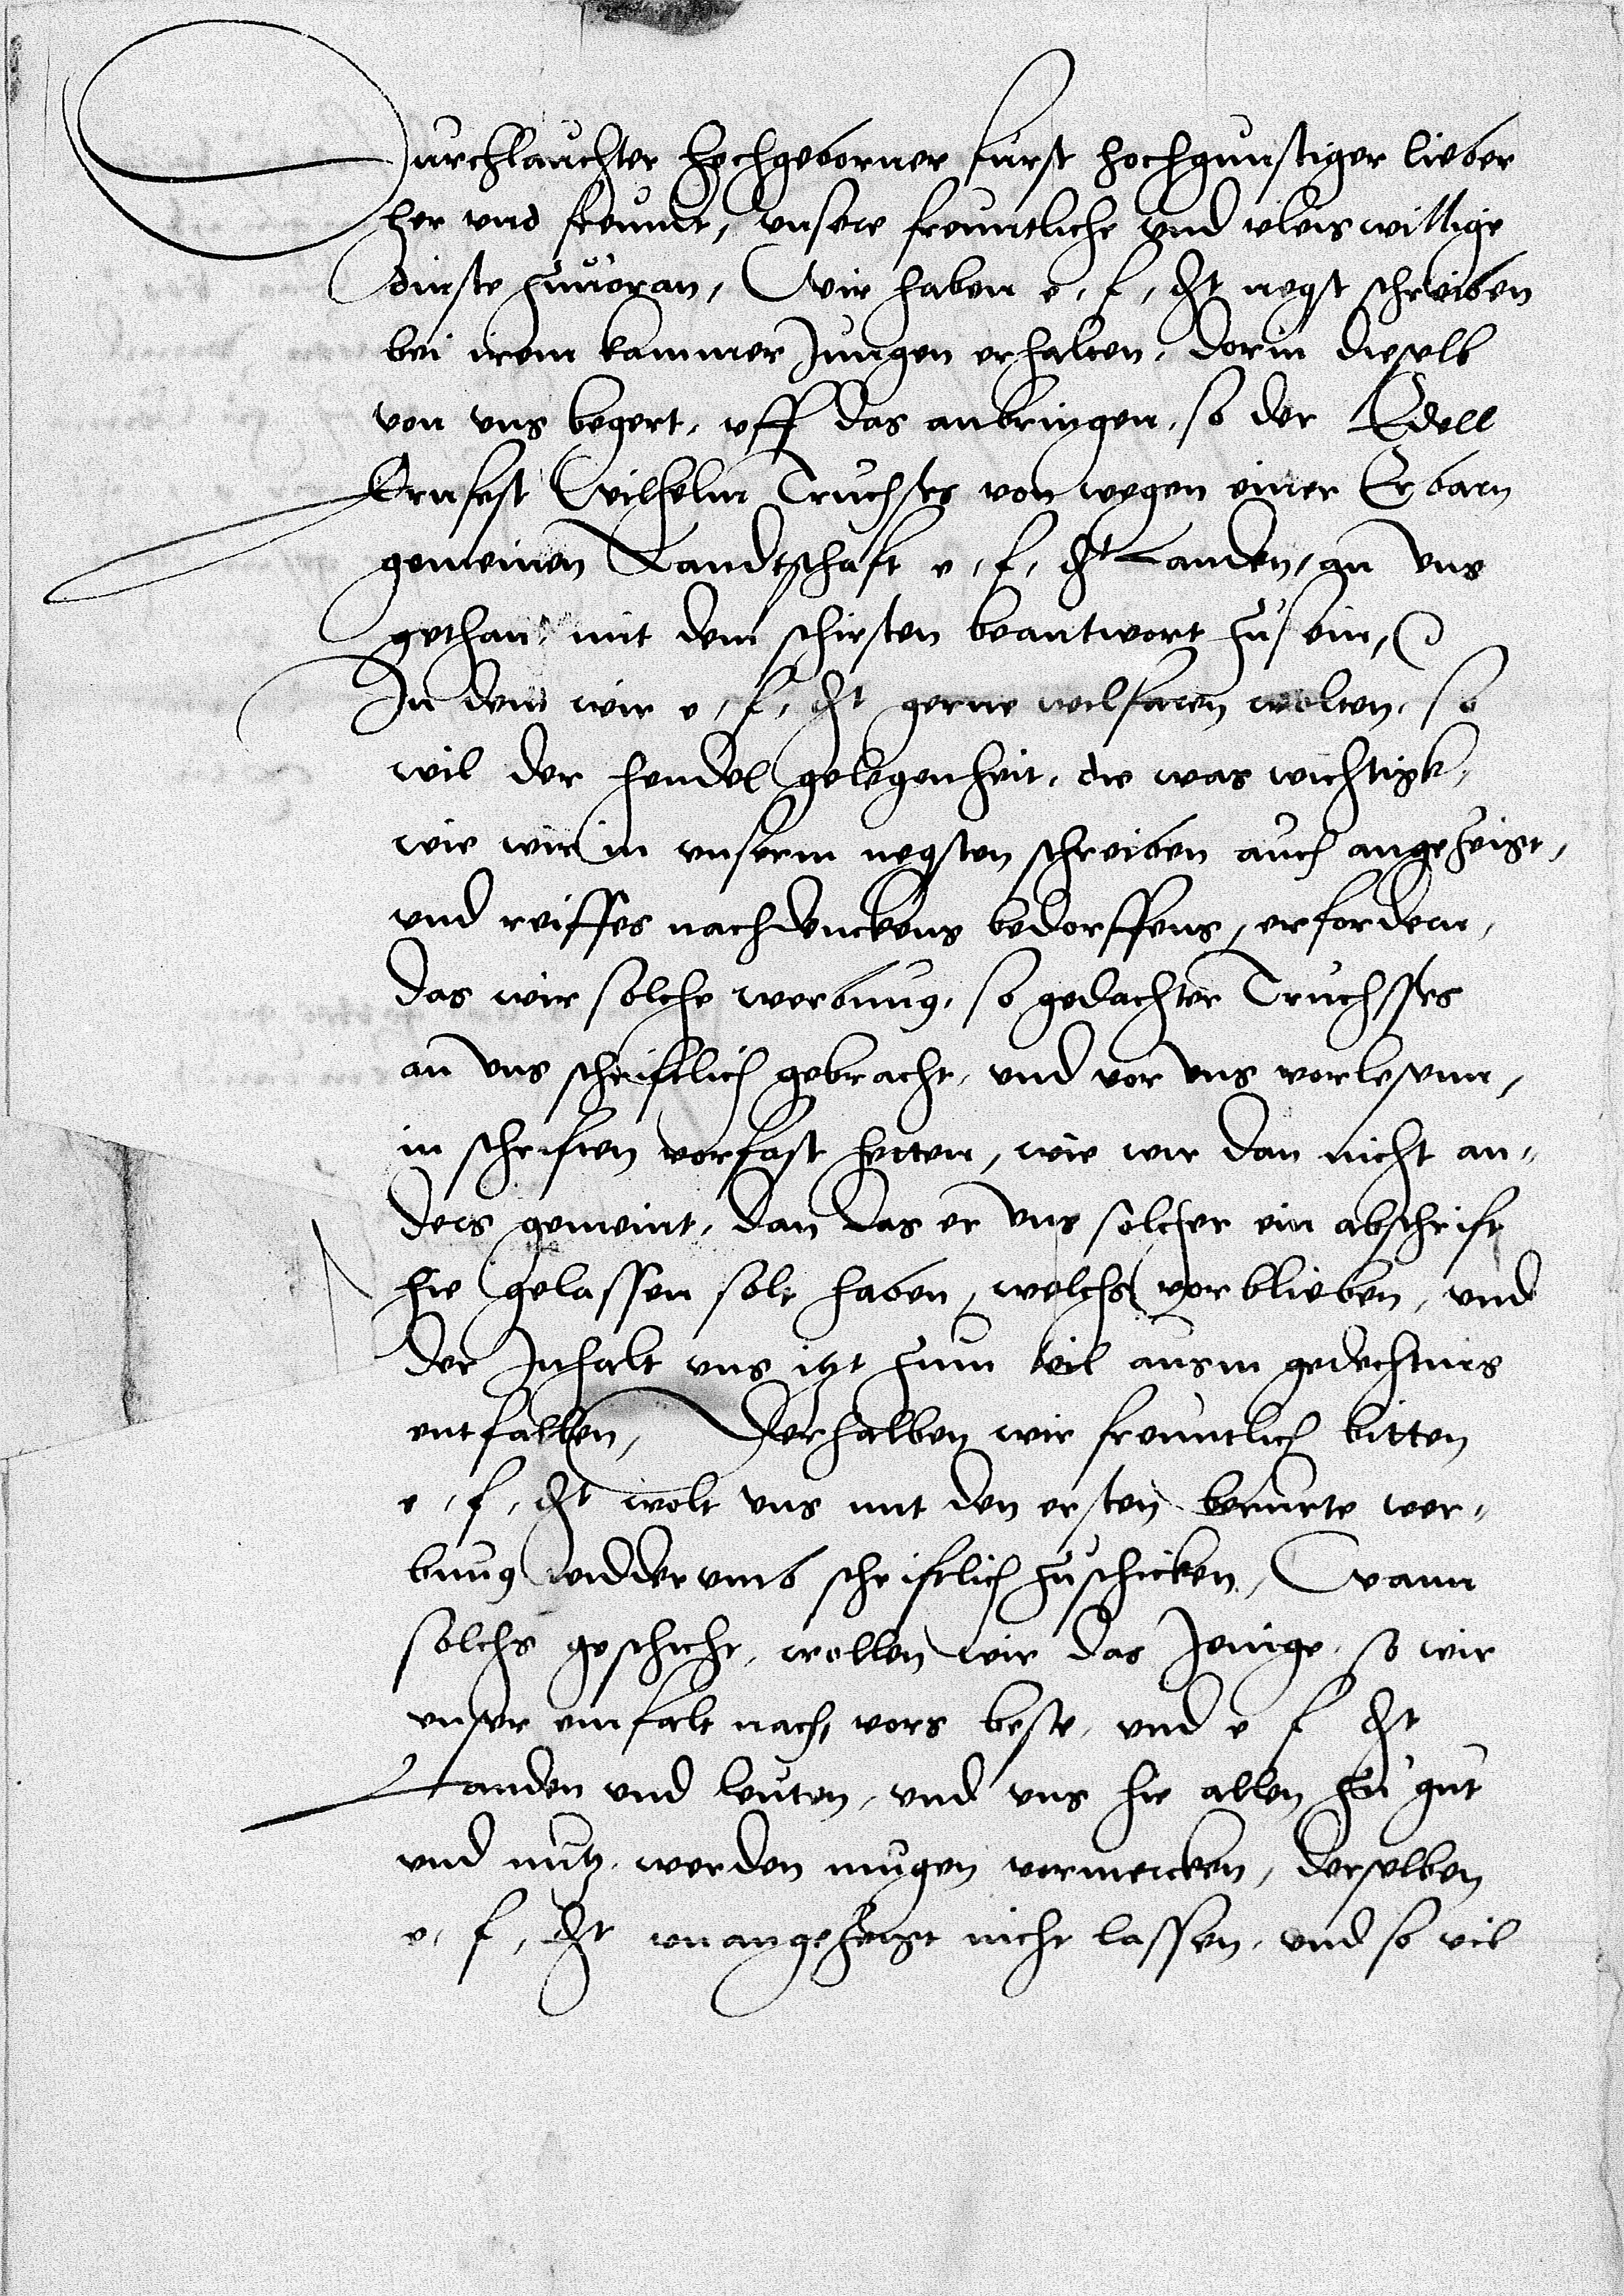 Durchlauchter hochgeborner furst hochgunstiger lieber
her und freundt, unsere freuntliche und vleis willige
dinste zuuoran, Wir haben e, f, dt negst schreiben
bei irem kammer Jungen erhalten, dorin dieselb
von uns begert, uff das anbringen, so der Edell
Ernfest Wilhelm Truchses von wegen einer Erbarn
gemeinen Landtschaft e, f, dt Landen, an uns
gethan, mit dem schirsten beantwort zu sein,
In dem wir e, f, dt gerne wilfaren wolten, so
wil der hendel gelegenheit, die was wichtigk,
wie wir in unserm negsten schreiben auch angezeigt,
und reiffes nachdenckens bedorffens, erfordern,
das wir solche werbung, so gedachter Truchsses
an uns schriftlich gebracht, und vor uns vorlesenn,
in schriften vorfast hetten, wie wir dan nicht an-
ders gemeint, dan das er uns solcher ein abschrift
hie gelassen solt haben, welchs vorblieben, und
der Inhalt uns itzt zum teil ausm gedechtnis
entfallen, Derhalben wir freuntlich bitten
e, f, dt wolt uns mit den ersten berurte wer-
bung widderumb schriftlich zuschicken, Wann
solchs geschicht, wollen wir das Jenige, so wir
unser einfalt nach, vors beste, und e f dt
Landen und leuten, und uns hie allen zu gut
und nutz, werden mugen vormercken, derselben
e, f, dt unangezeigt nicht lassen, und so vil